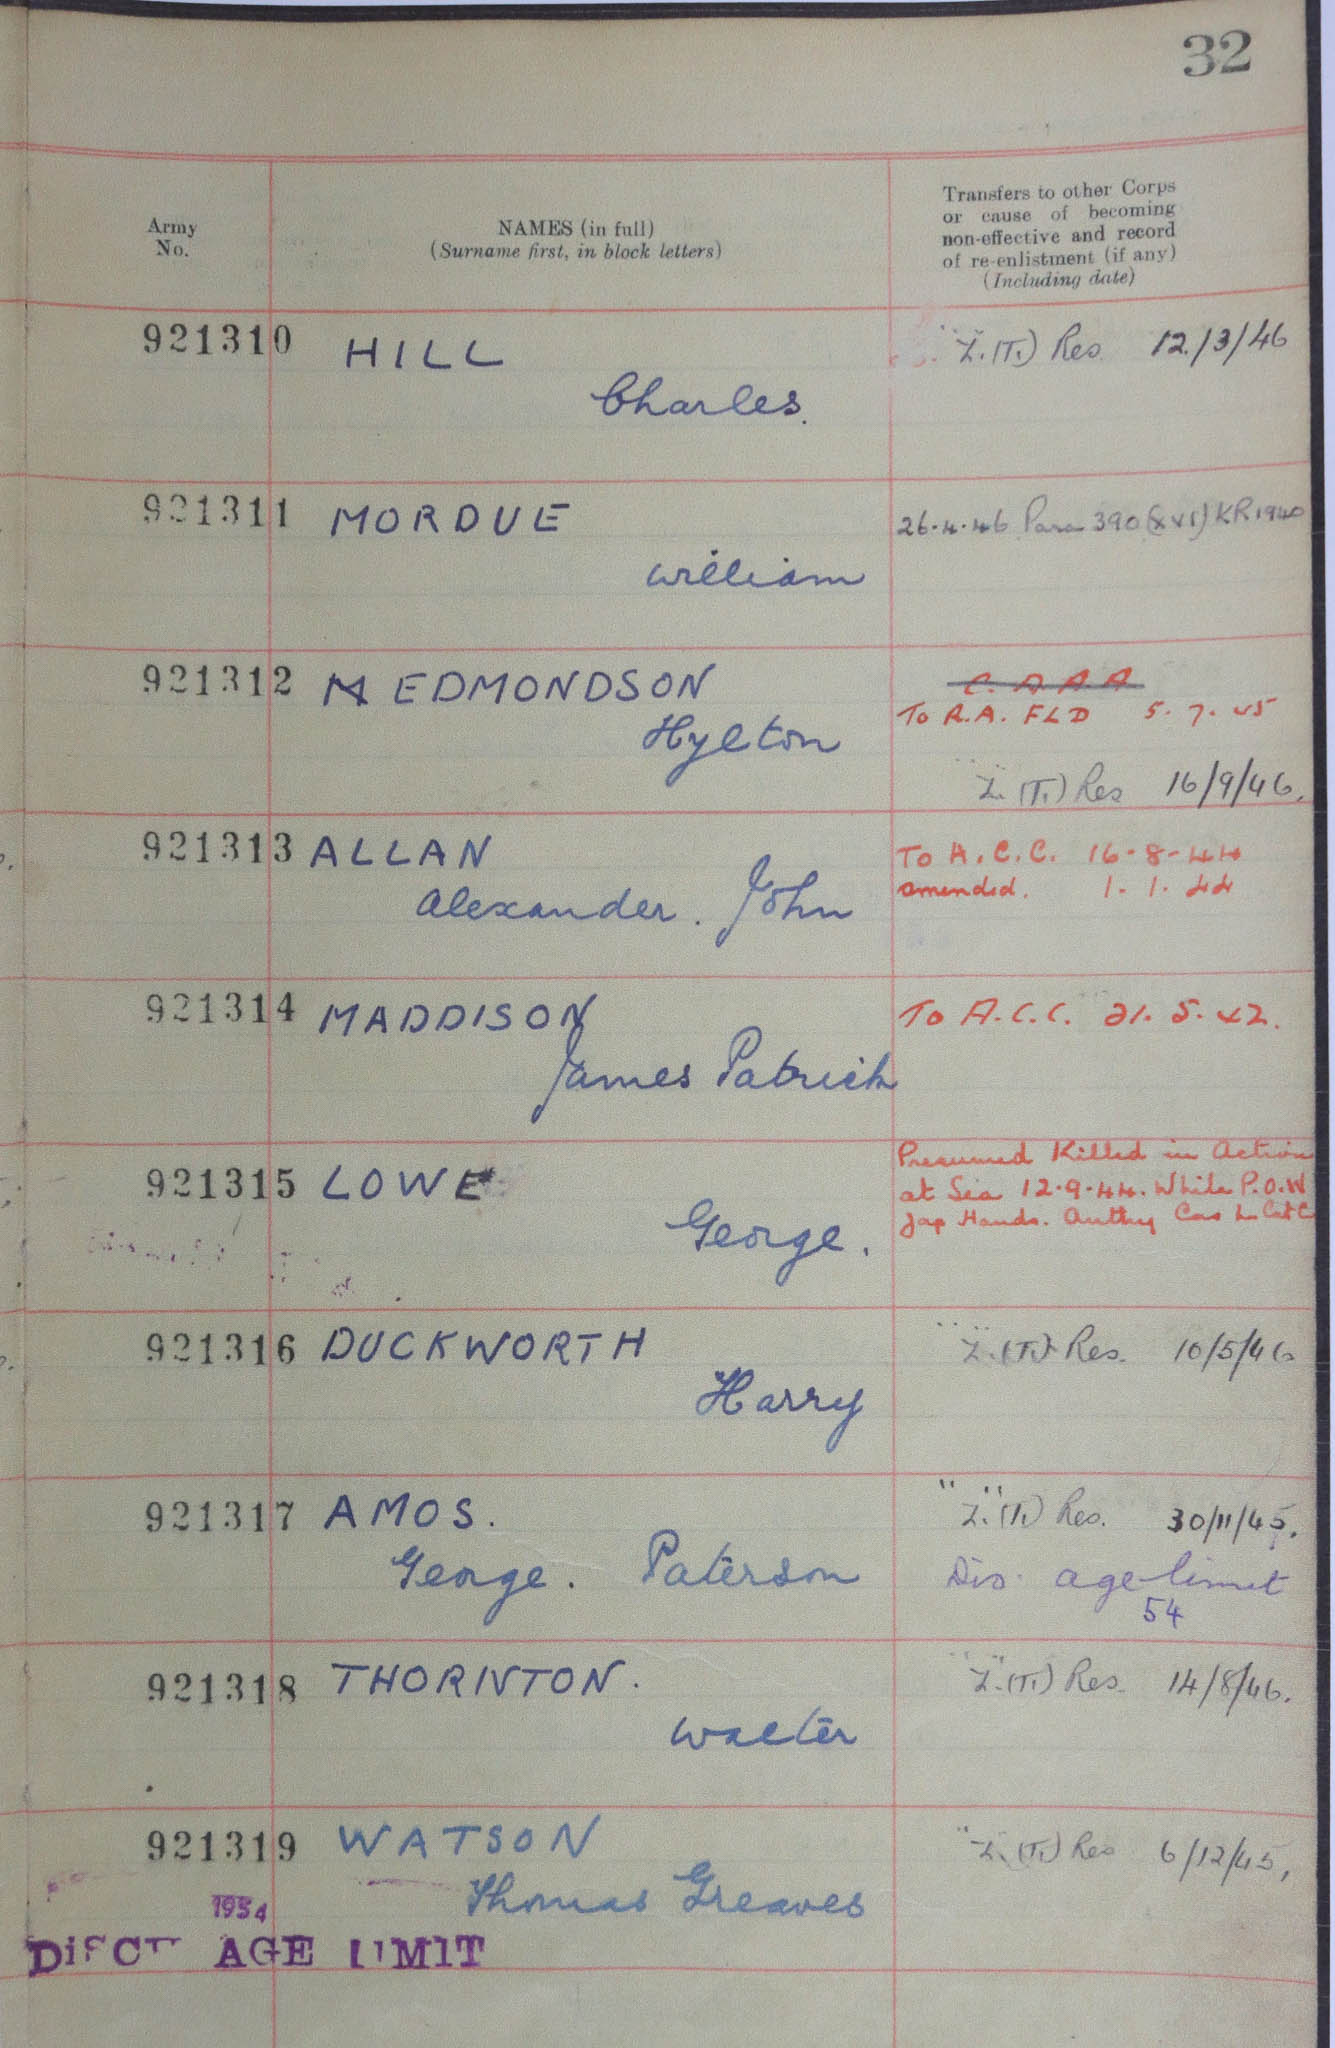 32
Army
No.
NAMES (in full)
(Surname first, in block letters)
Transfers to other Corps
or cause of becoming
non-effective and record
of re-enlistment (if any)
(Including date)
921310 HILL "Z.(T.) Res 12/3/46
Charles.
921311 MORDUE 26.4.46 Para 390 (XVI) KR 1940
William
921312 EDMONDSON C. A. A. A
To R.A. FLD 5. 7. 45
Hylton
"Z.(T.) Res 16/9/46.
921313 ALLAN To A.C.C. 16-8-44
Alexander. John amended. 1. 1. 44
921314 MADDISON To A.C.C. 21. 5. 42.
James Patrick
921315 LOWE Presumed Killed in Action
at Sea 12.9.44. While P.O.W
George. Jap Hands. Authy Cas
921316 DUCKWORTH "Z.(T.) Res. 10/5/46
Harry
921317 AMOS. "Z.(T.) Res. 30/11/45.
George. Paterson Dis. age limit
54
921318 THORNTON. "Z.(T.) Res. 14/8/46.
Walter
921319 WATSON "Z.(T.) Res 6/12/45.
Thomas Greaves
1954
AGE LIMIT